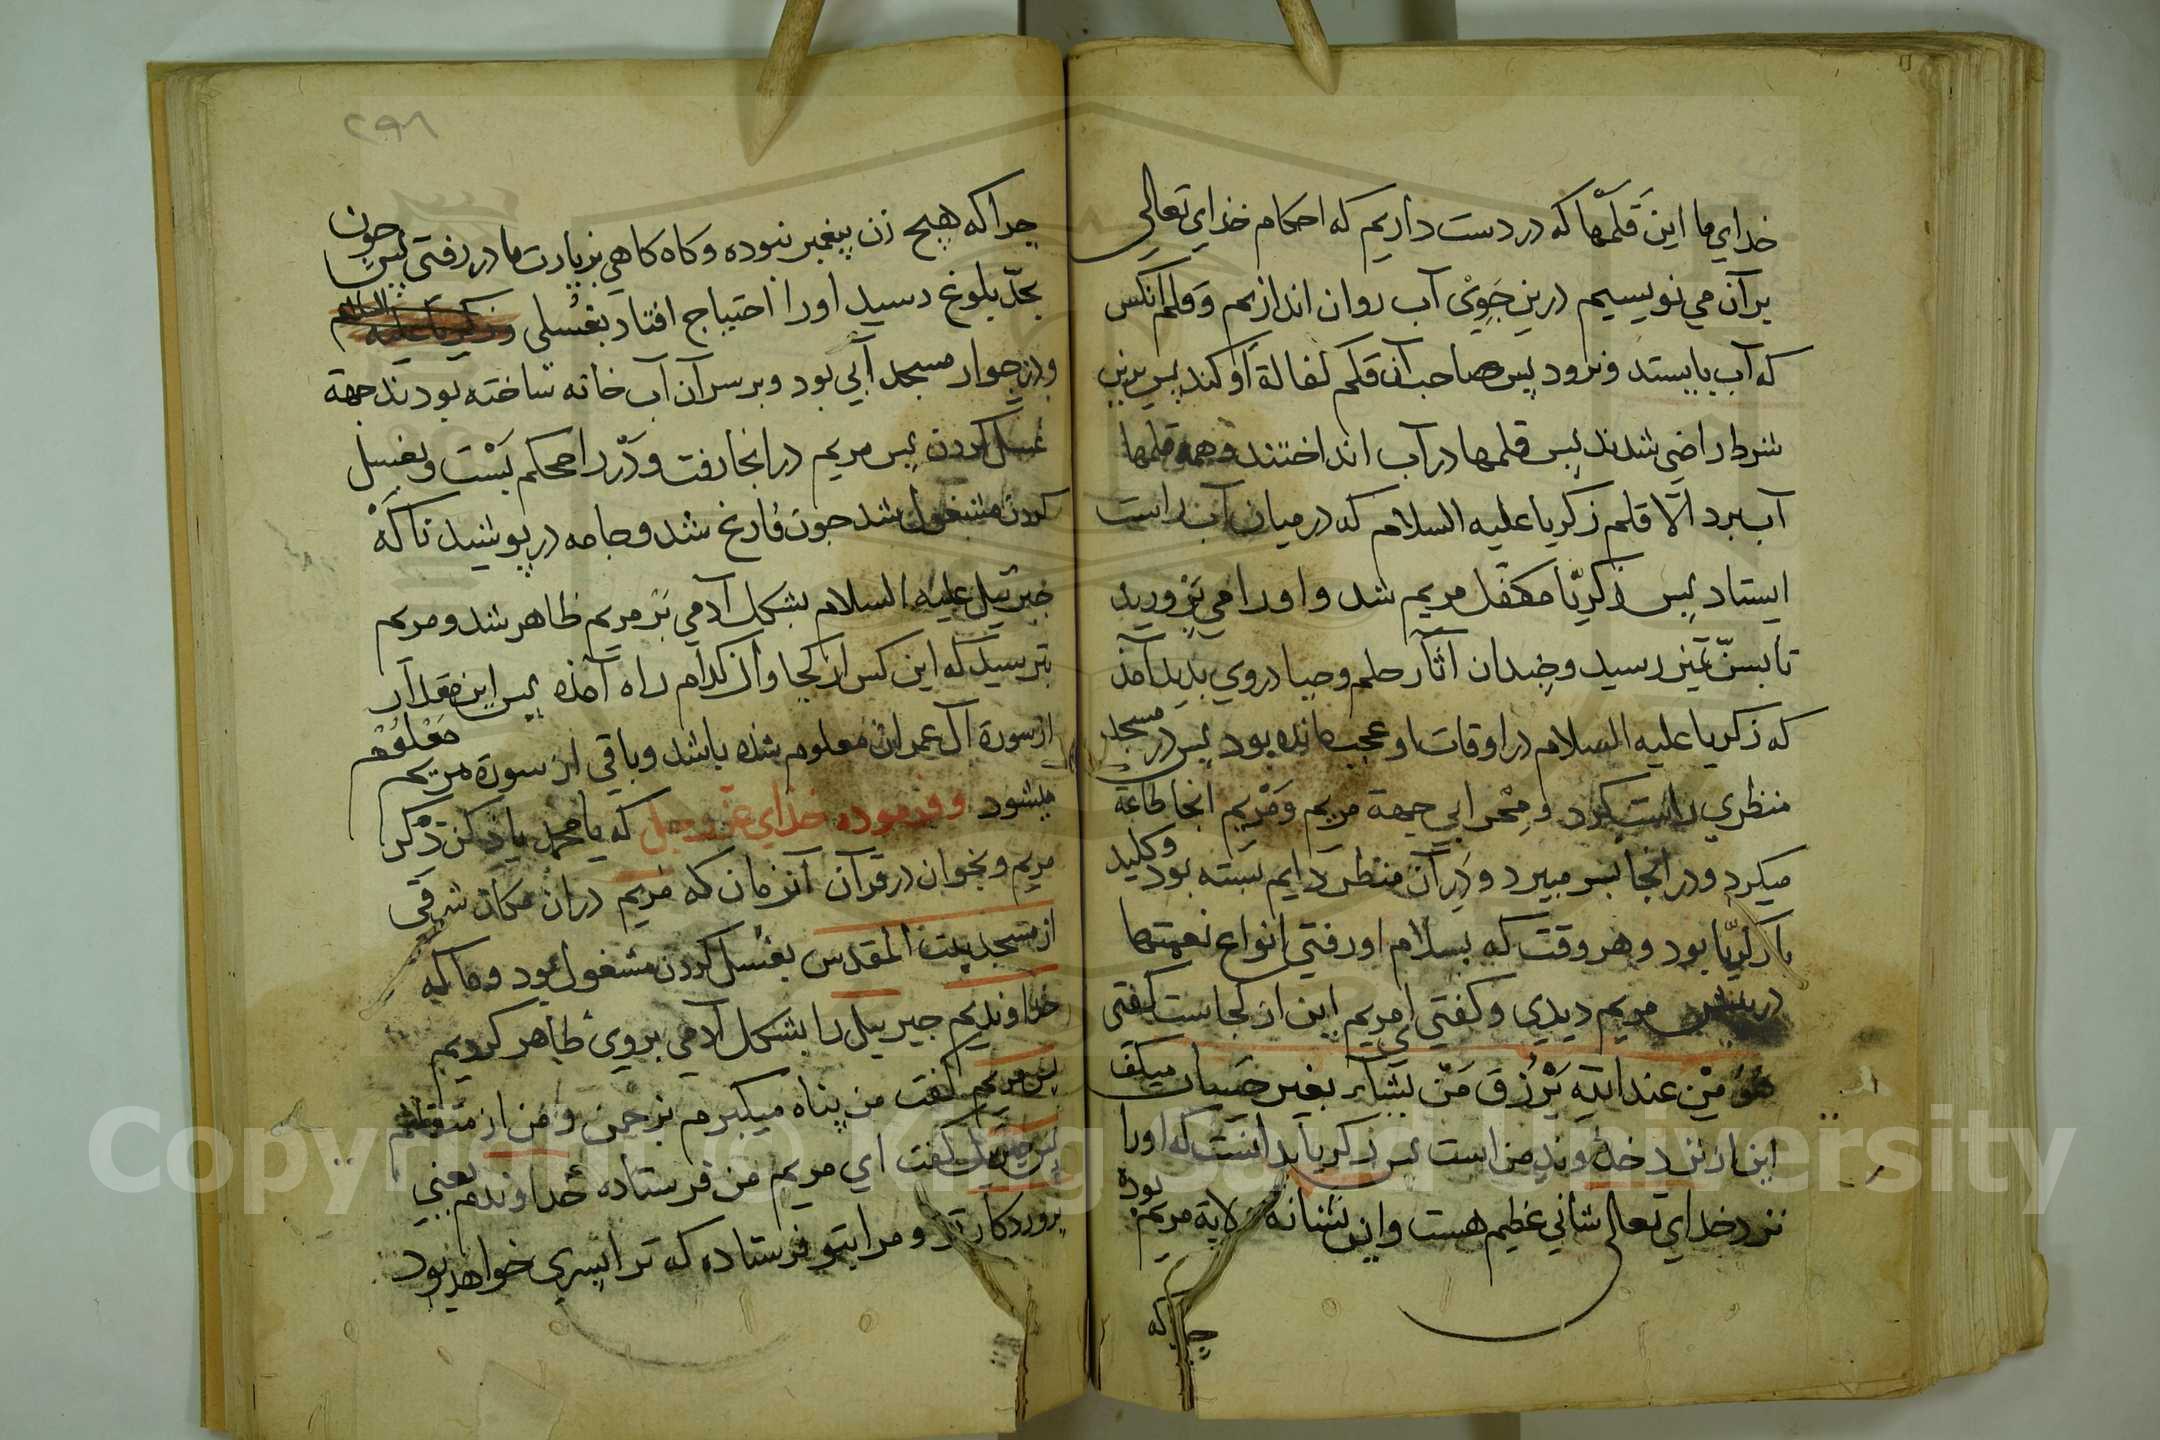 خدای ما این قلمها که در دست داریم که احکام خدای تعالی
برآن می نویسیم درین جوی آب روان اندازیم و قلم آنکس
که آب بایستد و نرود پس صاحب آن قلم کفالة او کند پس برین
شرط راضی شدند پس قلمها در آب انداختند و همه قلمها
آب برد الّا قلم زکریا علیه السلام که در میان آب راست
ایستاد پس زکریّا مکفل مریم شد و اورا می پرورید
تا بسنّ تمیز رسید و چندان آثار حلم و حیا دروی پدید آمد
که زکریا علیه السلام در اوقات او عجب مانده بود پس در مسجد
منظری راست کرد و محرابی جهة مریم و مریم انجا طاعة
میکرد و در انجا بسر میبرد و در آن منظر دایم بسته بود وکلید
با زکریّا بود و هر وقت که بسلام او رفتی انواع نعمتها
در پیش مریم دیدی و کفتی ای مریم این از کجاست کفتی
هُوَ مِنْ عند الله یَرْزُق مَنْ یشاء بغیر حساب میکفت
این از نزد خداوند من است پس زکریا بدانست که اورا
نزد خدای تعالی شانی عظیم هست و این نشانه ولایة مریم بوده
چرا که
٢٩٨
چرا که هیچ زن پیغمبر نبوده و کاه کاهی بزیارت مادر رفتی پس چون
بحدّ بلوغ رسید اورا احتیاج افتاد بغسلی و زکریا علیه السلام
ودر جوار مسجد آبی بود و بر سر آن آب خانه ساخته بودند جهة
غسل کردن پس مریم در انجا رفت و دررا محکم بست و بغسل
کردن مشغول شد چون فارغ شد و جامه در پوشید ناکه
جبرئیل علیه السلام بشکل آدمی بر مریم ظاهر شد و مریم
بترسید که این کس از کجا و از کدام راه آمده پس این مقدار
از سورة آل عمران معلوم شده باشد و باقی از سورة مریم معلوم
میشود و فرموده خدای عزّ وجل که یا محمد یاد کن ذکر
مریم و بخوان در قرآن آنزمان که مریم دران مکان شرقی
از مسجد بیت المقدس بغسل کردن مشغول بود و ما که
خداوندیم جبرییل را بشکل آدمی بروی ظاهر کردیم
پس مریم کفت من پناه میکیرم برحمن و من از
پس جبریل کفت ای مریم من فرستاده خداوندم یعنی
پروردکار تو و مرا بتو فرستاده که ترا پسری خواهد بود
Copyright © King Saud University